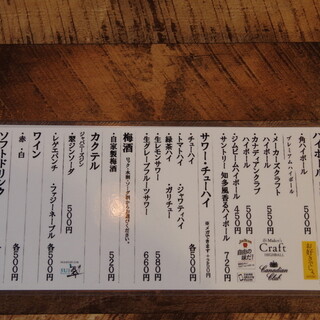 ハイボール
・角ハイボール 500円
プレミアムハイボール
・メーカーズクラフト
ハイボール 550円
・カナディアンクラブ
ハイボール 500円
・ジムビームハイボール 450円
・サントリー 知多風香るハイボール 720円
Maker's
Craft
HIGHBALL
Canadian
Club
サワー・チューハイ
・チューハイ
・トマトハイ
・ジャワティハイ
・緑茶ハイ
・ガリチュー
各500円
・生レモンサワー 580円
・生グレープフルーツサワー 660円
梅酒
・自家製梅酒 520円
カクテル
ジャパニーズジン
・翠ジンソーダ 500円
・レゲエパンチ
・ファジーネーブル
各500円
ワイン
・赤・白 各500円
ソフトドリンク